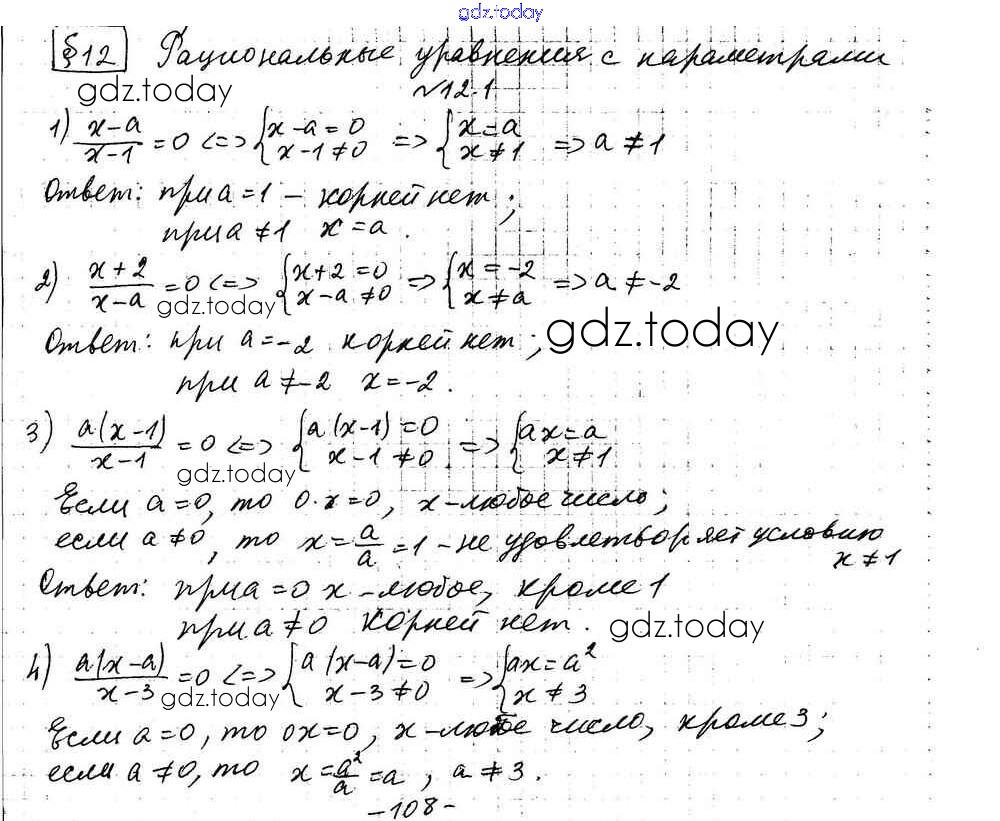 gdz.today
§12 Рациональные уравнения с параметрами
gdz.today
№12.1
1) (x-a)/(x-1) = 0 <=> {x-a=0; x-1≠0 => {x=a; x≠1 => a≠1
Ответ: при a=1 – корней нет;
при a≠1 x=a.
2) (x+2)/(x-a) = 0 <=> {x+2=0; x-a≠0 => {x=-2; x≠a => a≠-2
gdz.today
Ответ: при a=-2 корней нет;
gdz.today
при a≠-2 x=-2.
3) a(x-1)/(x-1) = 0 <=> {a(x-1)=0; x-1≠0 => {ax=a; x≠1
gdz.today
Если a=0, то 0·x=0, x-любое число;
если a≠0, то x=a/a=1 – не удовлетворяет условию
x≠1
Ответ: при a=0 x-любое, кроме 1
при a≠0 корней нет.
gdz.today
4) a(x-a)/(x-3) = 0 <=> {a(x-a)=0; x-3≠0 => {ax=a²; x≠3
gdz.today
Если a=0, то 0x=0, x-любое число, кроме 3;
если a≠0, то x=a²/a=a, a≠3.
-108-